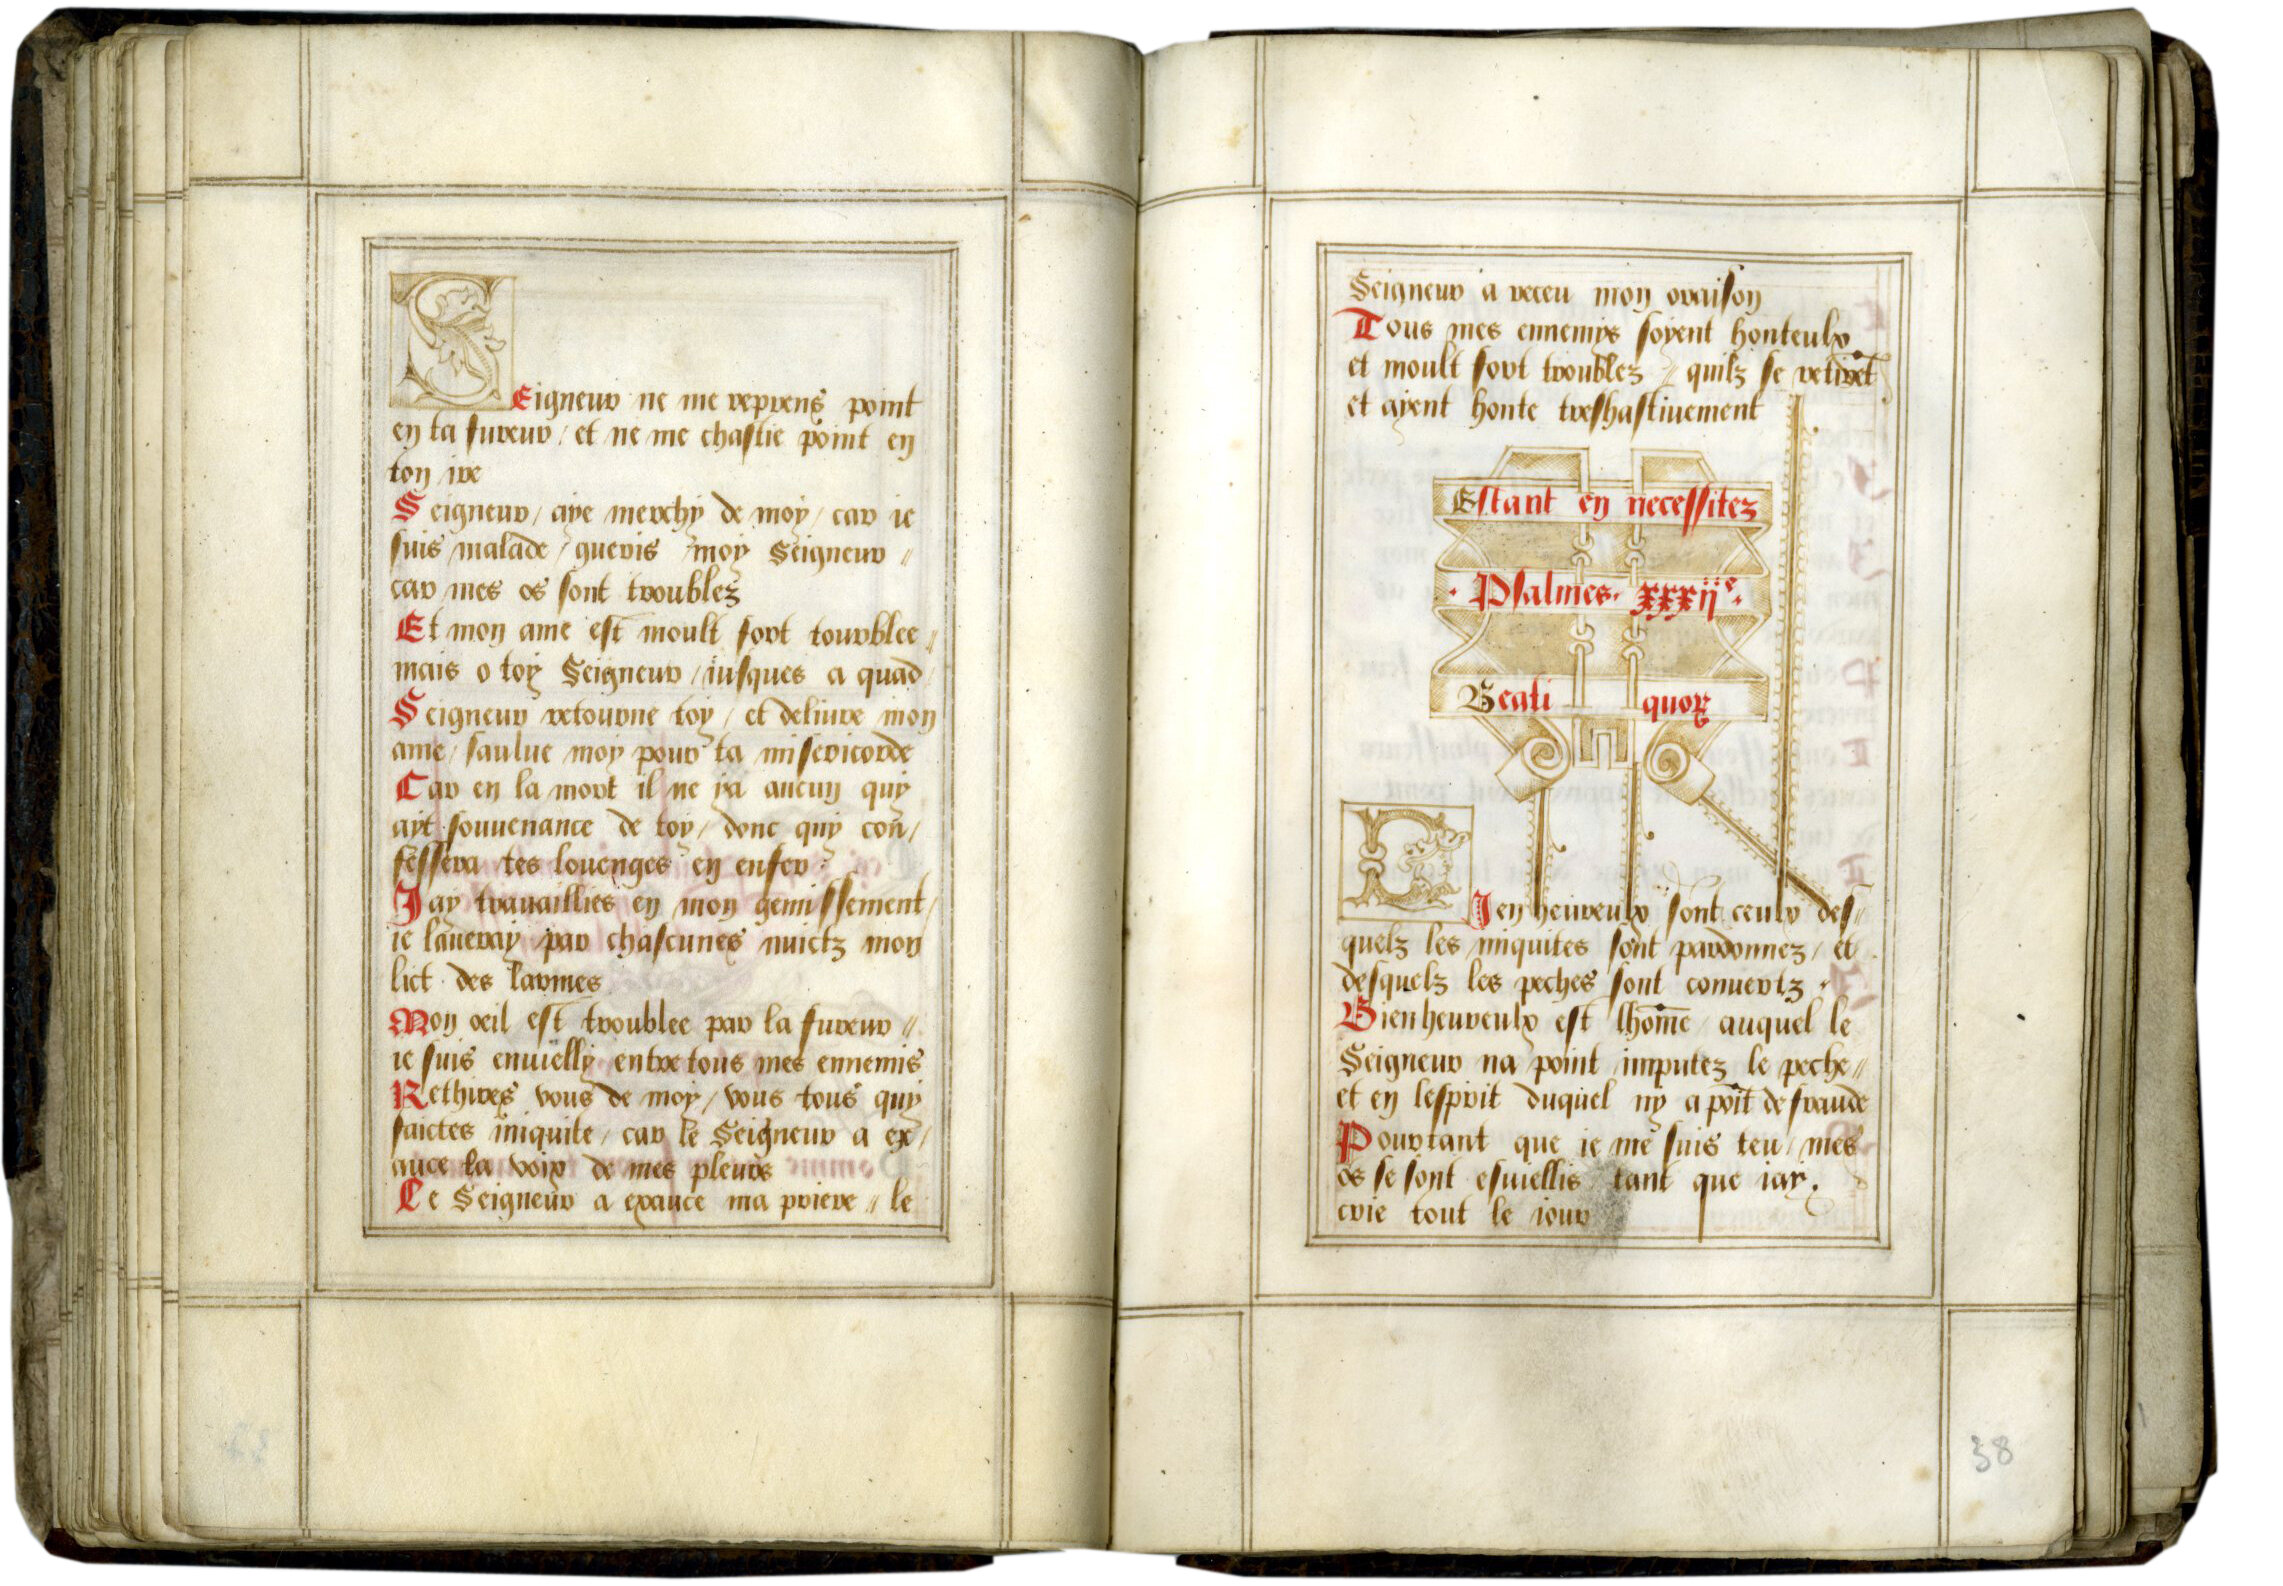 Seigneur ne me reprens point
en ta fureur / et ne me chastie point en
ton ire
Seigneur / aye merchy de moy / car ie
suis malade / gueris moy Seigneur //
car mes os sont troublez
Et mon ame est moult fort tourblee //
mais o toy Seigneur / iusques a quād /
Seigneur retourne toy / et deliure mon
ame / saulue moy pour ta misericorde
Car en la mort il ne ya aucun quy
ayt souuenance de toy / donc quy con /
fessera tes louenges en enfer
Jay trauaillies en mon gemissement /
ie laueray par chascunes nuictz mon
lict des larmes
Mon oeil est troublee par la fureur //
ie suis enuielly entre tous mes ennemis
Rethires vous de moy / vous tous quy
faictes iniquite / car le Seigneur a ex /
auce la voix de mes pleurs
Le Seigneur a exauce ma priere // le
Seigneur a receu mon oraison
Tous mes ennemys soyent honteulx
et moult fort troublez // quilz se retirēt
et ayent honte treshastiuement
Estant en necessitez
· Psalmes · xxxijᵉ ·
Beati quorꝝ
Bien heureulx sont ceulx des //
quelz les iniquites sont pardonnez / et
desquelz les peches sont conuertz ·
Bien heureulx est lhom̄e auquel le
Seigneur na point imputez le peche //
et en lesprit duquel ny a poīt de fraude
Pourtant que ie me suis teu / mes
os se sont esuiellis tant que iay
crie tout le iour
38